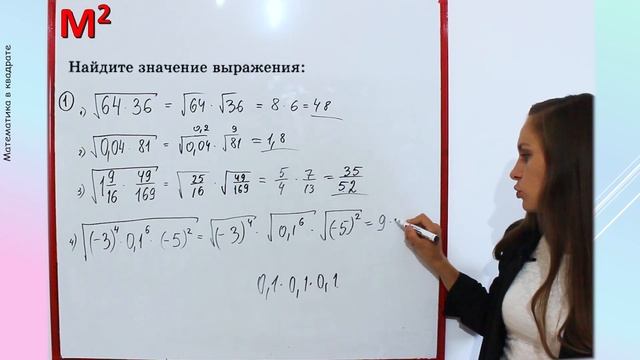 М²
Математика в квадрате
Найдите значение выражения:
① 1) √(64 · 36) = √64 · √36 = 8 · 6 = 48
0,2 9
2) √(0,04 · 81) = √0,04 · √81 = 1,8
3) √(1 9/16 · 49/169) = √(25/16) · √(49/169) = 5/4 · 7/13 = 35/52
4) √((-3)⁴ · 0,1⁶ · (-5)²) = √(-3)⁴ · √0,1⁶ · √(-5)² = 9 ·
0,1 · 0,1 · 0,1